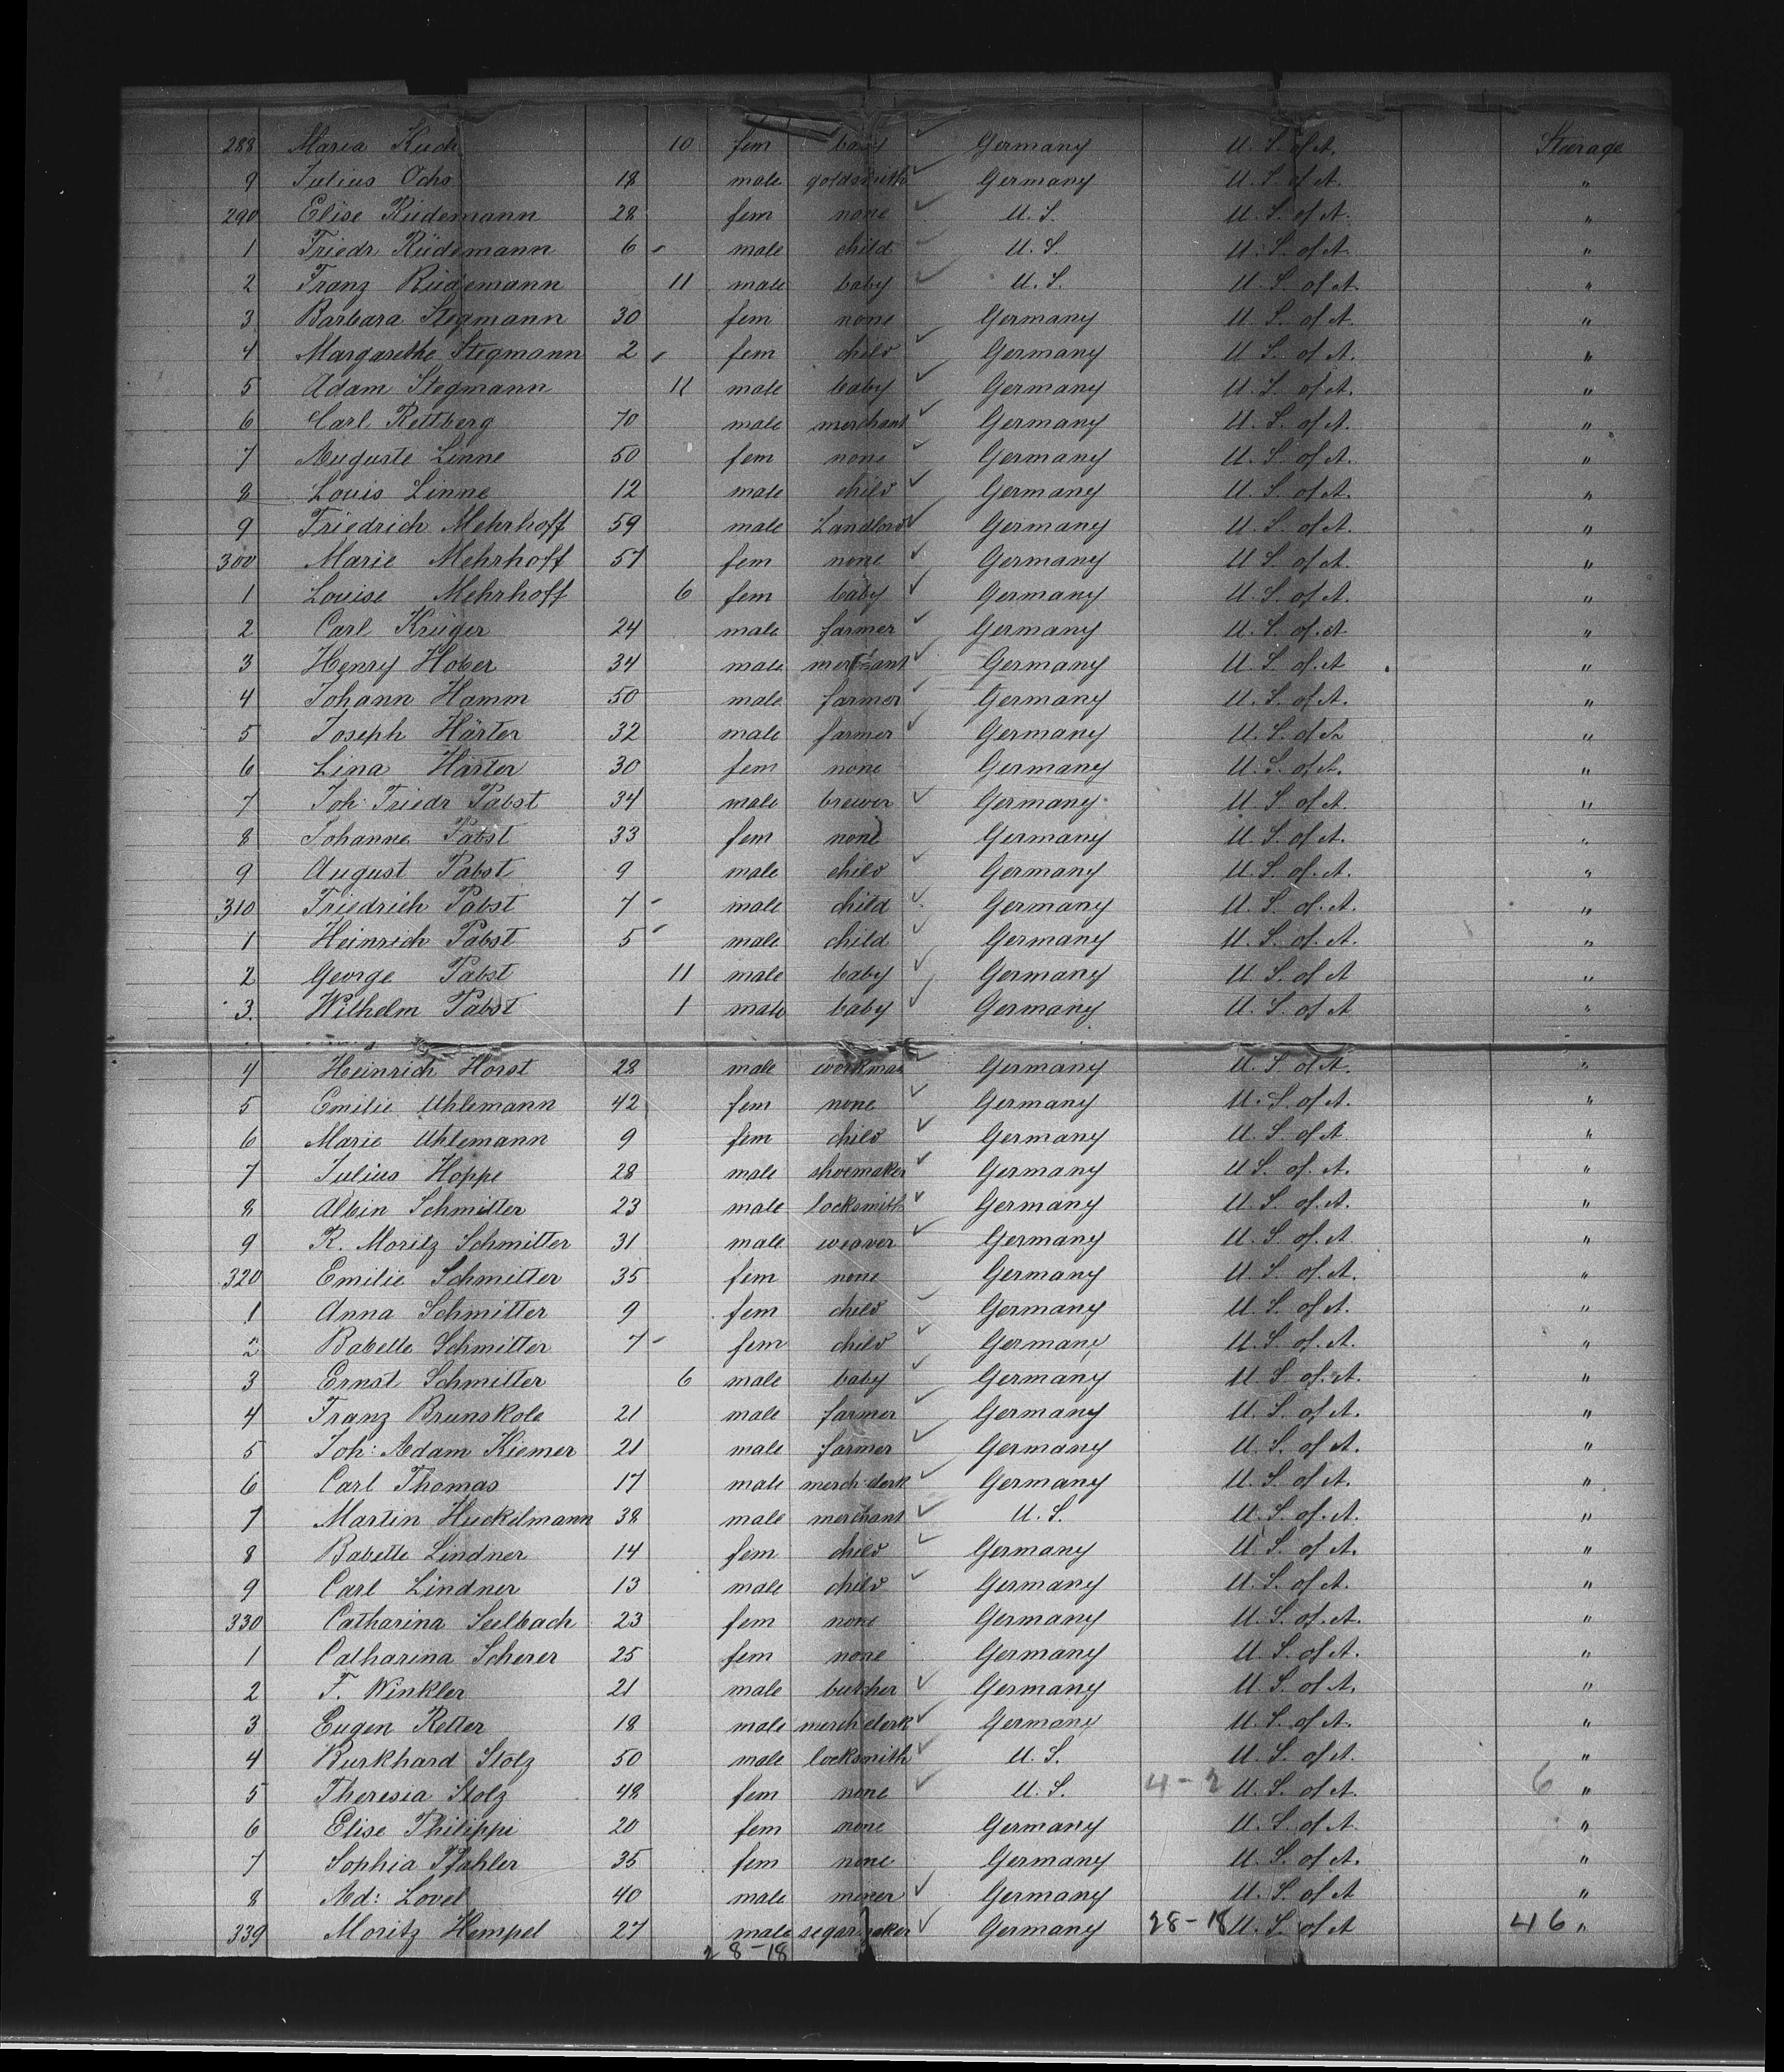 288 Maria Kuch 10 fem baby ✓ Germany U. S. of A. Steerage
9 Julius Ochs 18 male goldsmith ✓ Germany U. S. of A. "
290 Elise Rüdemann 28 fem none ✓ U. S. U. S. of A. "
1 Friedr. Rüdemann 6 - male child ✓ U. S. U. S. of A. "
2 Franz Rüdemann 11 male baby ✓ U. S. U. S. of A. "
3 Barbara Stegmann 30 fem none Germany U. S. of A. "
4 Margarethe Stegmann 2 - fem child ✓ Germany U. S. of A. "
5 Adam Stegmann 11 male baby ✓ Germany U. S. of A. "
6 Carl Rettberg 70 male merchant ✓ Germany U. S. of A. "
7 Auguste Linne 50 fem none ✓ Germany U. S. of A. "
8 Louis Linne 12 male child ✓ Germany U. S. of A. "
9 Friedrich Mehrhoff 59 male Landlord ✓ Germany U. S. of A. "
300 Marie Mehrhoff 57 fem none ✓ Germany U. S. of A. "
1 Louise Mehrhoff 6 fem baby ✓ Germany U. S. of A. "
2 Carl Krüger 24 male farmer ✓ Germany U. S. of A "
3 Henry Hober 34 male merchant ✓ Germany U. S. of A "
4 Johann Hamm 50 male farmer ✓ Germany U. S. of A. "
5 Joseph Härter 32 male farmer ✓ Germany U. S. of A "
6 Lina Härter 30 fem none Germany U. S. of A. "
7 Joh: Friedr Pabst 34 male brewer ✓ Germany U. S. of A. "
8 Johanne Pabst 33 fem none Germany U. S. of A. "
9 August Pabst 9 male child ✓ Germany U. S. of A. "
310 Friedrich Pabst 7 - male child ✓ Germany U. S. of A. "
1 Heinrich Pabst 5 - male child ✓ Germany U. S. of A. "
2 George Pabst 11 male baby ✓ Germany U. S. of A "
3. Wilhelm Pabst 1 male baby ✓ Germany U. S. of A "
4 Heinrich Horst 28 male workman ✓ Germany U. S. of A. "
5 Emilie Uhlemann 42 fem none ✓ Germany U. S. of A. "
6 Marie Uhlemann 9 fem child ✓ Germany U. S. of A "
7 Julius Hoppe 28 male shoemaker ✓ Germany U S. of A. "
8 Albin Schmitter 23 male locksmith ✓ Germany U. S. of A. "
9 R. Moritz Schmitter 31 male weaver ✓ Germany U. S. of A "
320 Emilie Schmitter 35 fem none Germany U. S. of A. "
1 Anna Schmitter 9 fem child ✓ Germany U. S. of A. "
2 Babette Schmitter 7 - fem child ✓ Germany U. S. of A. "
3 Ernst Schmitter 6 male baby ✓ Germany U. S. of A. "
4 Franz Brunskole 21 male farmer ✓ Germany U. S. of A. "
5 Joh: Adam Kiemer 21 male farmer ✓ Germany U. S. of A. "
6 Carl Thomas 17 male merch clerk ✓ Germany U. S. of A. "
7 Martin Huckelmann 38 male merchant ✓ U. S. U. S. of A. "
8 Babette Lindner 14 fem child ✓ Germany U. S. of A. "
9 Carl Lindner 13 male child ✓ Germany U. S. of A. "
330 Catharina Seelbach 23 fem none Germany U. S. of A. "
1 Catharina Scherer 25 fem none Germany U. S. of A. "
2 F. Winkler 21 male butcher ✓ Germany U. S. of A. "
3 Eugen Retter 18 male merch clerk ✓ Germany U. S. of A. "
4 Burkhard Stolz 50 male locksmith ✓ U. S. U. S. of A. "
5 Theresia Stolz 48 fem none ✓ U. S. 4-2 U. S. of A. 6 "
6 Elise Philippi 20 fem none Germany U. S. of A. "
7 Sophia Pfahler 35 fem none Germany U. S. of A. "
8 Ad: Lovel 40 male miner ✓ Germany U. S. of A "
339 Moritz Hempel 27 male segarmaker ✓ Germany 28-18 U. S. of A 46 "
28-18